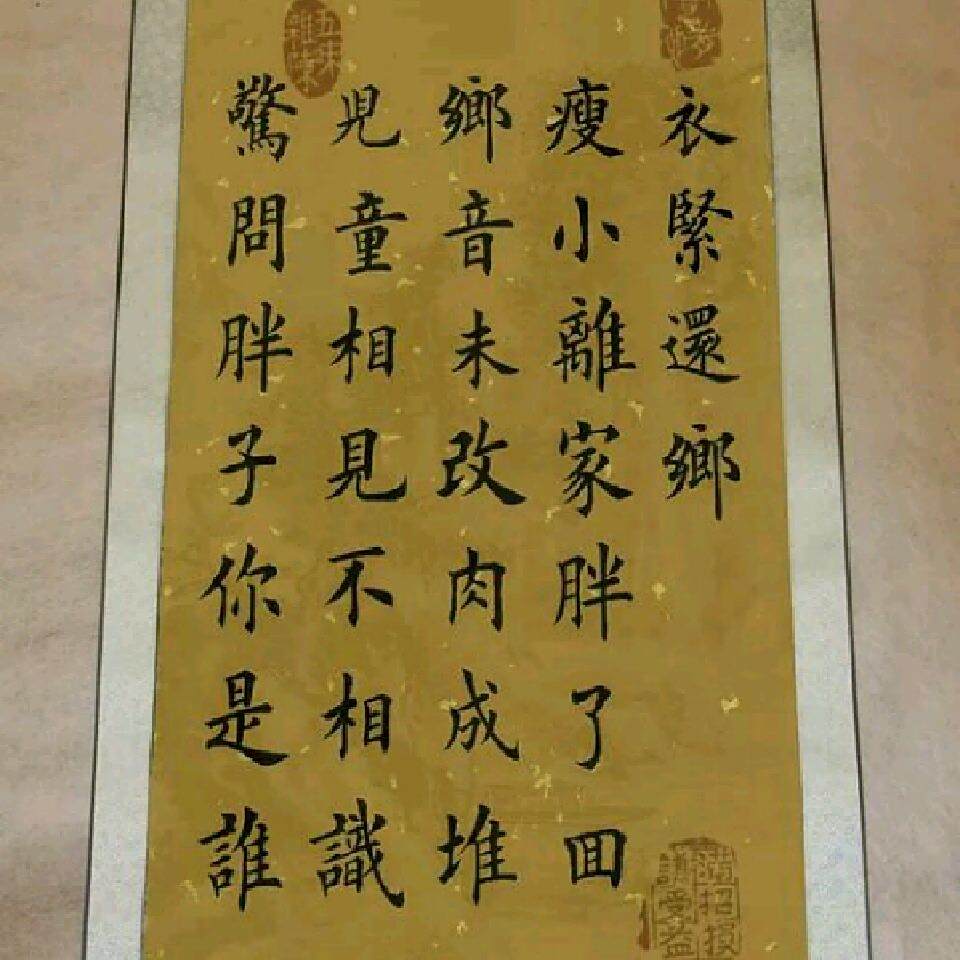 衣緊還鄉
瘦小離家胖了回
鄉音未改肉成堆
兒童相見不相識
驚問胖子你是誰
滿招損
謙受益